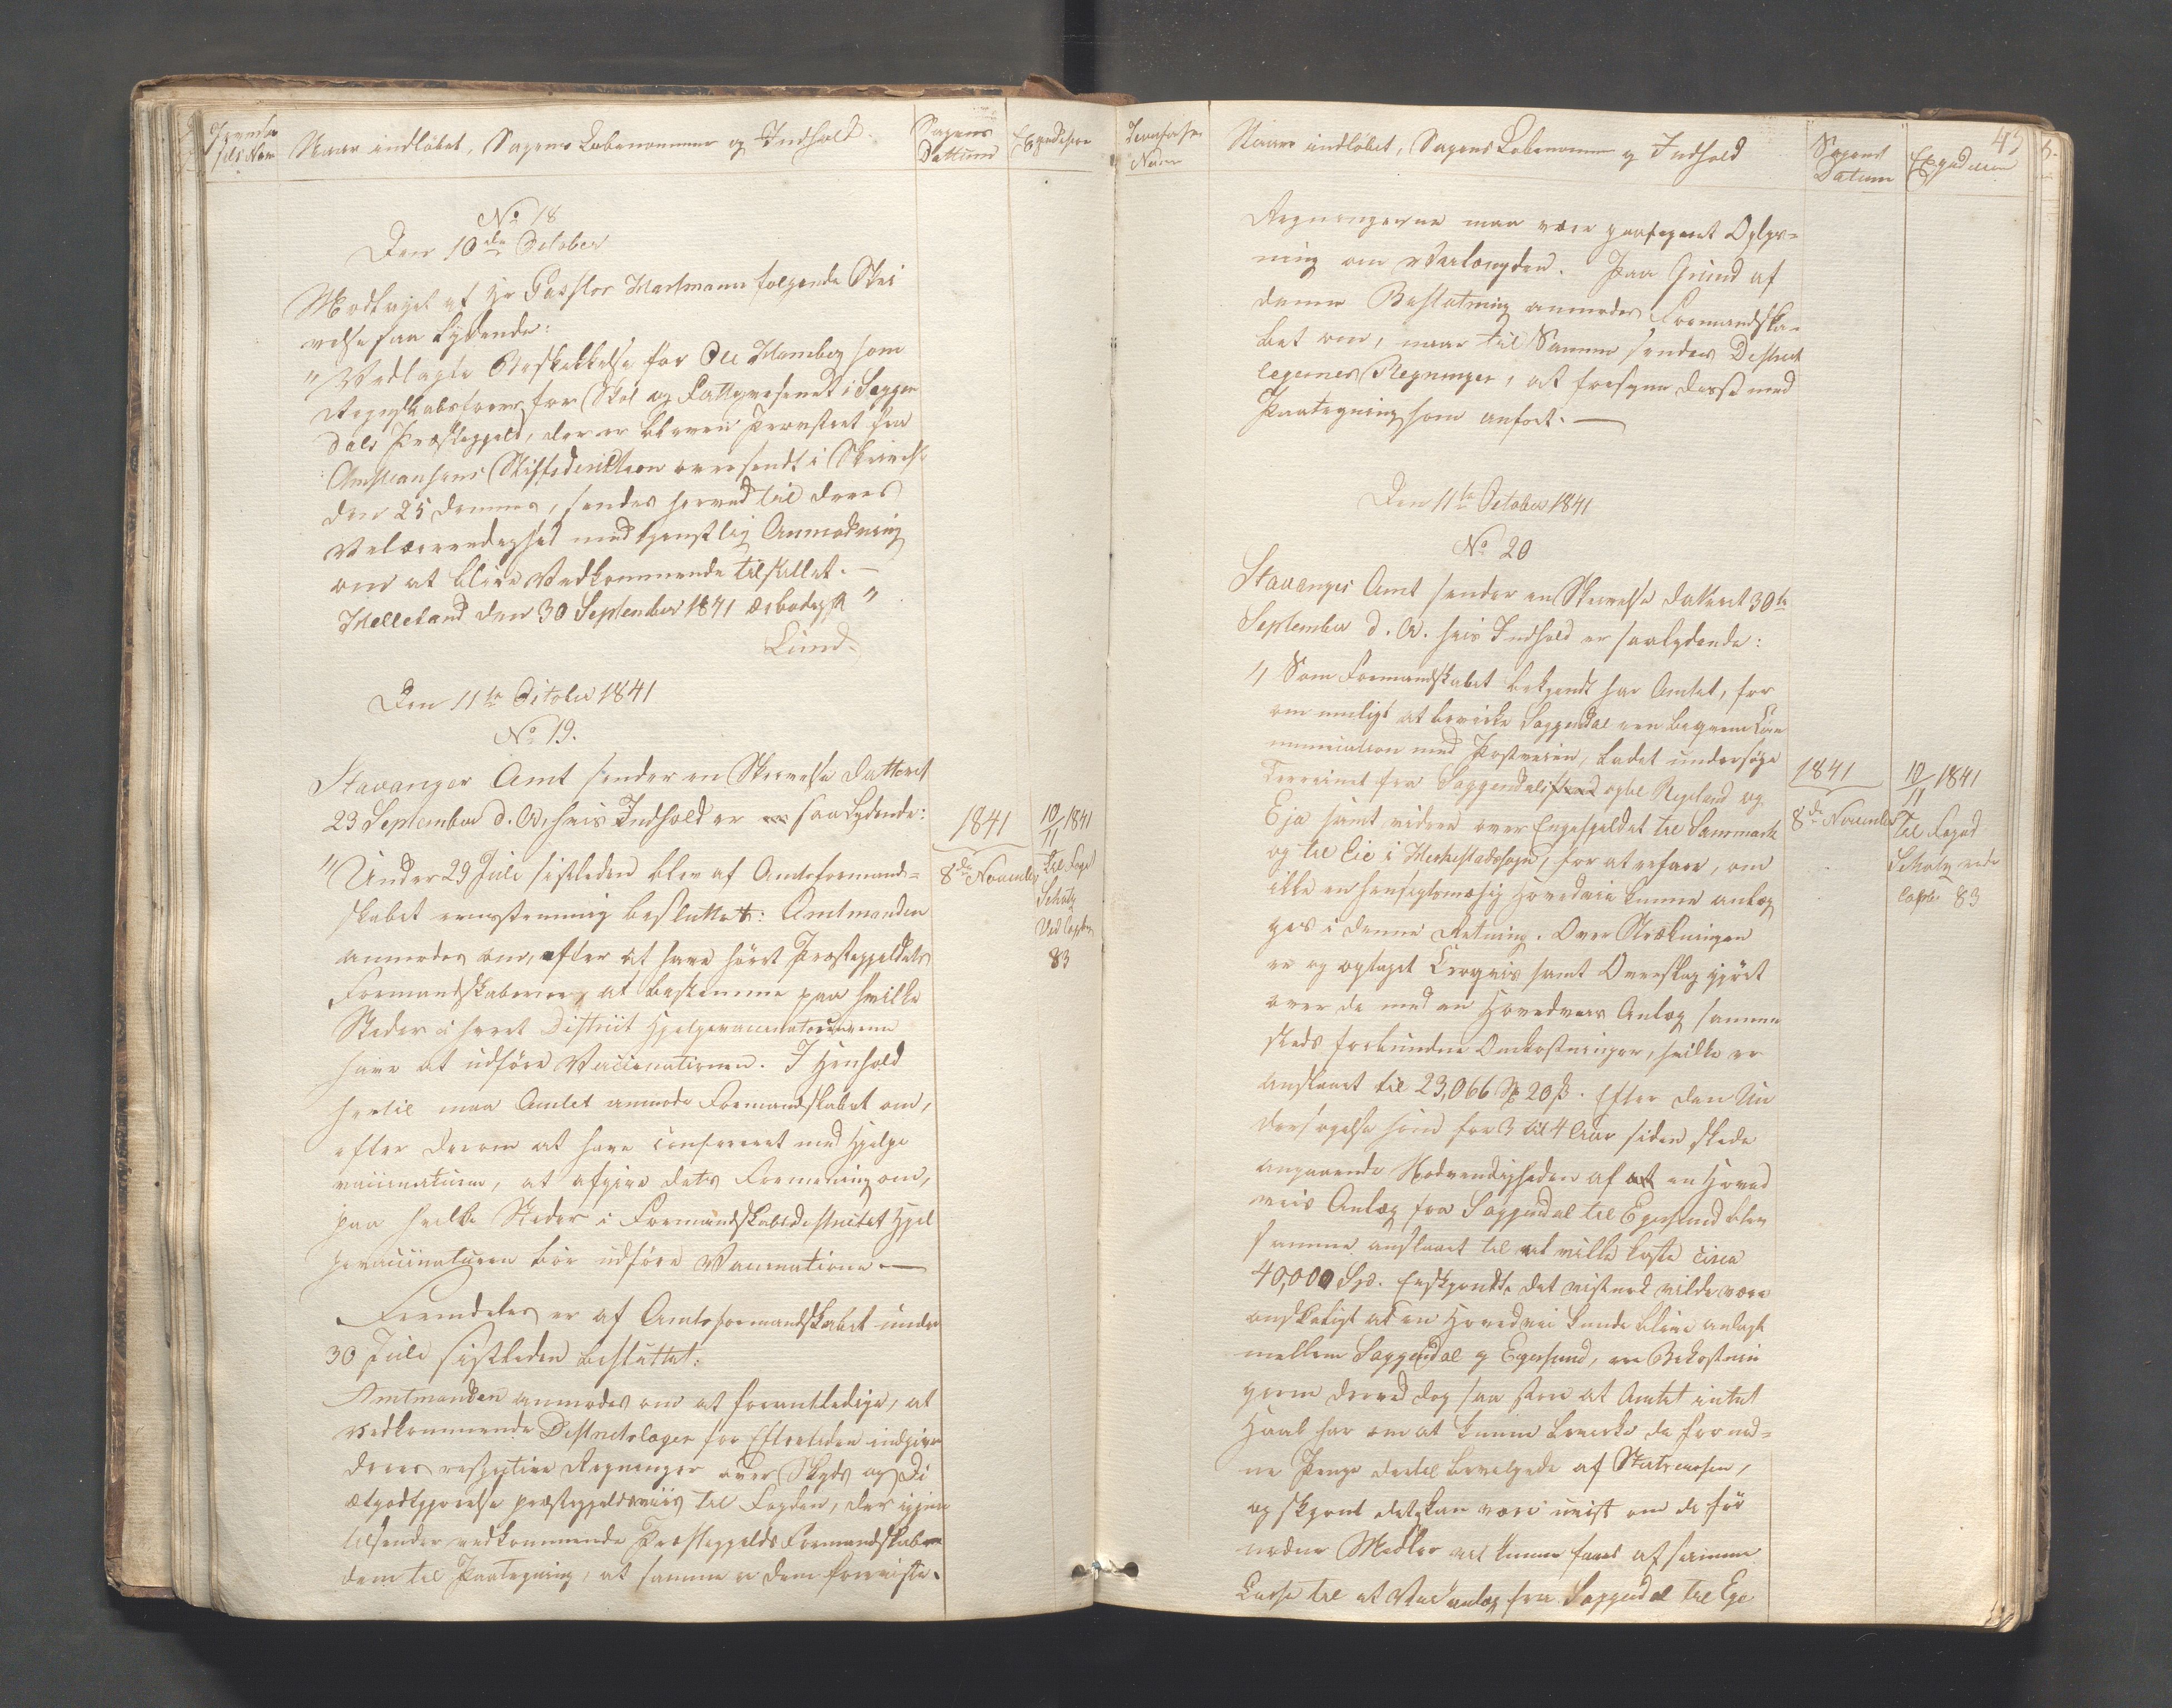 Naar indløbet, Sagens Løbenommer og Indhold.
Sagens
Dattum
Expedition
No 18
Den 10de October
Modtaget af Hr Pastor Hartmann følgende Skri
velse saa Lydende:
"Vedlagte Beskikkelse for Ole Hamberg som
Regnskabsfører for Skol og Fattigvesenet i Soggen
dals Præstegjeld, der er bleven Provstiet fra
Christiansans Stiftsdirection oversendt i Skrivelse
den 25 dennes, sendes herved til Deres
Velærværdighed med tjenstlig Anmodning
om at blive Vedkommende tilstillet.—
Helleland den 30 September 1841 ærbødigst "
Lund.
Den 11te October 1841
No 19.
Stavanger Amt sender en Skrivelse Datteret
23 September d. A, hvis Indhold er saa Lydende:
"Under 29 Juli sistleden blev af Amtsformand-
skabet eenstemmig besluttet: Amtmanden
anmodes om, efter at have hørt Præstegjeldets
Formandskaberne, at bestemme paa hvilke
Steder i hvert District Hjelpevaccinateurerne
have at udføre Vaccinationen. I Henhold
hertil maa Amtet anmode Formandskabet om,
efter derom at have confereret med Hjelpe
vaccinateuren, at afgive dets Formening om,
paa hvilke Steder i Formandskabsdistrictet Hjel
pevaccinateuren bør udføre Vaccinationen —
Fremdeles er af Amtsformandskabet under
30 Juli sistleden besluttet:
Amtmanden anmodes om at foranledige, at
vedkommende Districtslæger for Eftertiden indgive
deres respective Regninger over Skyds og Di
ætgodtgjørelse præstegjeldsviis til Fogden, der igjen
tilsender vedkommende Præstegjelds Formandskaber
dem til Paategning, at samme er dem foreviste.
1841
8de November
10/11 1841
til Foged
Schiøtz
Ved Copb
83
Naar indløbet, Sagens Løbenommer og Indhold
Sagens
Datum
Expedition
Regningerne maa være paategnet Oplys-
ning om Veilængden. Paa Grund af
denne Beslutning anmodes Formandska-
bet om, naar til Samme sendes District
lægernes Regninger, at forsyne disse med
Paategning som anført.—
Den 11te October 1841
No 20
Stavanger Amt sender en Skrivelse datteret 30te
September d. A. hvis Indhold er saalydende:
"Som Formandskabet bekjendt har Amtet, for
om muligt at bevirke Soggendal en beqvem Com
munication med Postveien, ladet undersøge
Terrainet fra Soggendals op til Regeland og
Eja samt videre over Engesfjeldet til Lammark
og til Eie i Heskestadsogn, for at erfare, om
ikke en hensigtsmæsig Hovedvei kunne anlæg
ges i denne Retning. Over Strækningen
er og optaget Croquis samt Overslag gjort
over de med en Hovedveis Anlæg sammen
steds forbundne Omkostninger, hvilke er
anslaaet til 23,066 Sp 20 ß. Efter den Un
dersøgelse som for 3 til 4 Aar siden skede
angaaende Nødvendigheden af en Hoved
veis Anlæg fra Soggendal til Egersund blev
samme anslaaet til at ville koste circa
40,000 Spd. Endskjøndt det vistnok vilde være
ønskeligt at en Hovedvei kunde blive anlagt
mellem Soggendal og Egersund, ere Bekostnin
gerne derved dog saa store at Amtet intet
Haab har om at kunne bevirke de fornød-
ne Penge dertil bevilgede af Statscassen,
og skjønt det kan være uvist om de for
nødne Midler vil kunne faaes af samme
Casse til at Vei anlæg fra Soggendal til Ege
1841
8de November
10/11 1841
Til Foged
Schiøtz vede
Copb 83